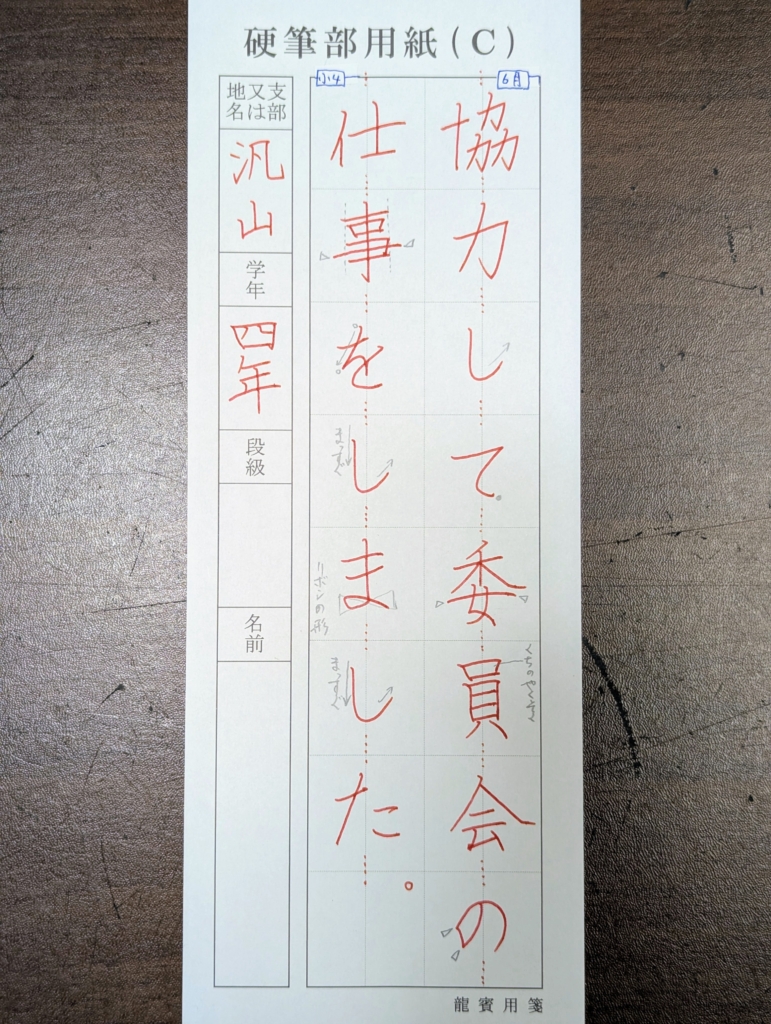 硬筆部用紙(C)
6月
小4
協力して委員会の
仕事をしました。
くちのやくそく
まっすぐ
リボンの形
まっすぐ
支部
又は
地名
汎山
学年
四年
段級
名前
龍賓用箋